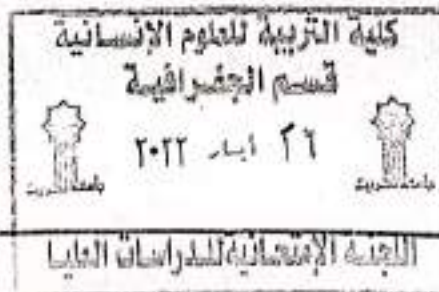 كلية التربية للعلوم الإنسانية
قسم الجغرافية
٢٦ أيار ٢٠٢٢
جامعة تكريت
جامعة تكريت
اللجنة الإمتحانية للدراسات العليا